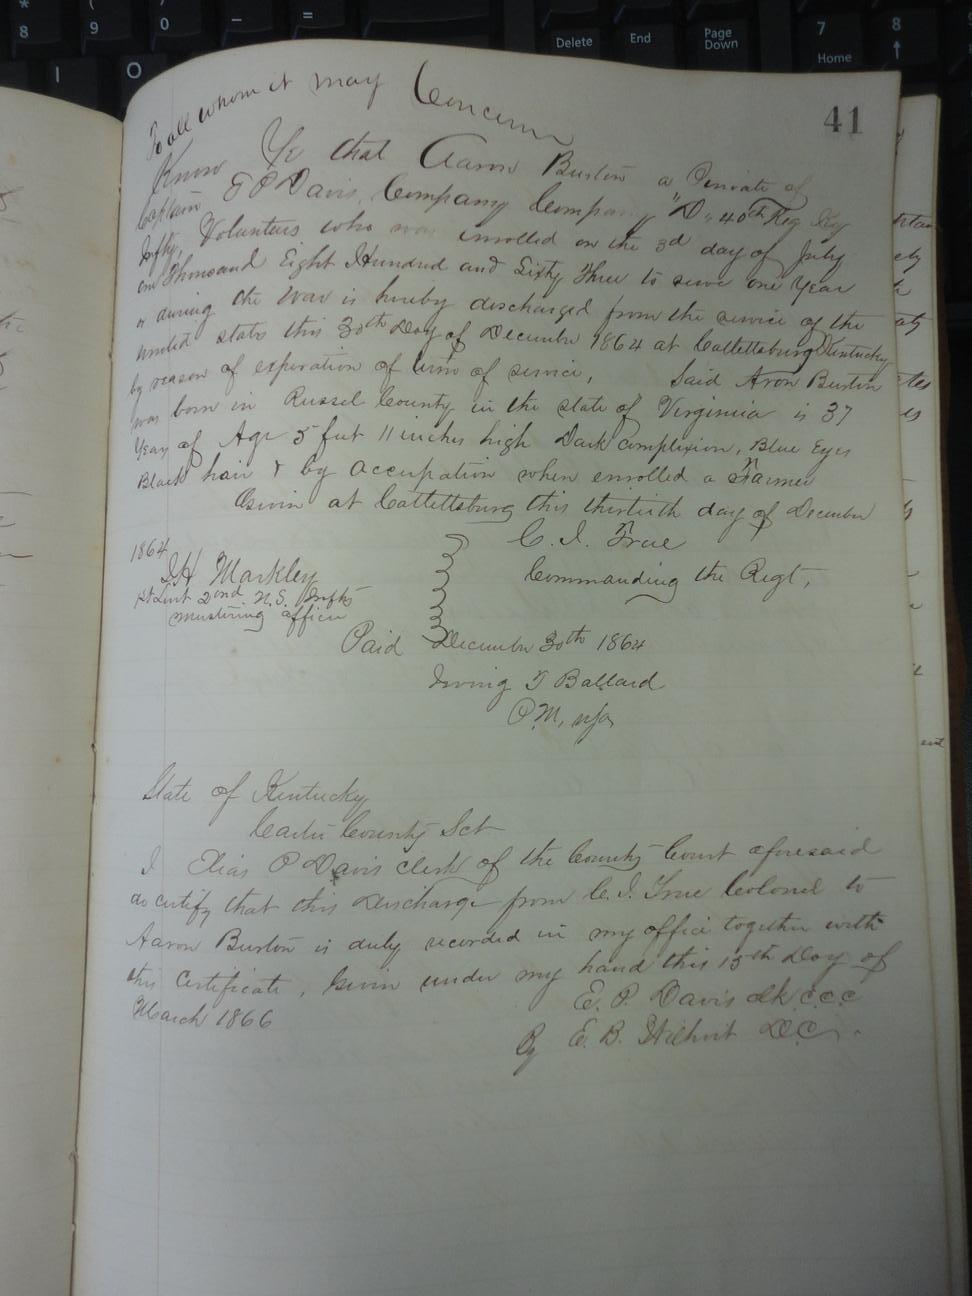 41
To all whom it may Concern
Know Ye that Aaron Burton a Private of
Captain T P Davis, Company Company "D" 40th Reg Ky
Infty, Volunteers who was enrolled on the 3d day of July
one Thousand Eight Hundred and Sixty Three to serve one Year
or during the War is hereby discharged from the service of the
united states this 30th Day of December 1864 at Cattettsburg Kentucky
by reason of experation of term of service, Said Aron Burton
was born in Russel County in the state of Virginia is 37
Year of Age 5 feet 11 inches high Dark complexion, Blue Eyes
Black hair & by accupation when enrolled a Farmer
Givin at Cattettsburg this thirtieth day of December
1864
C. J. True
Commanding the Regt,
J H Markley
1st Lieut 2nd N.S. Infty
mustering officer
Paid December 30th 1864
Irving T Ballard
P.M,
State of Kentucky
Carter County Sct
I Elias P Davis clerk of the County Court aforesaid
do certify that this Discharge from C. J. True Colonel to
Aaron Burton is duly recorded in my office together with
this Certificate, Givin under my hand this 15th Day of
March 1866
E. P. Davis clk c.c.c
By E. B. Wilhoit D.C.
8
9
0
I
O
–
=
Delete
End
Page
Down
7
Home
8